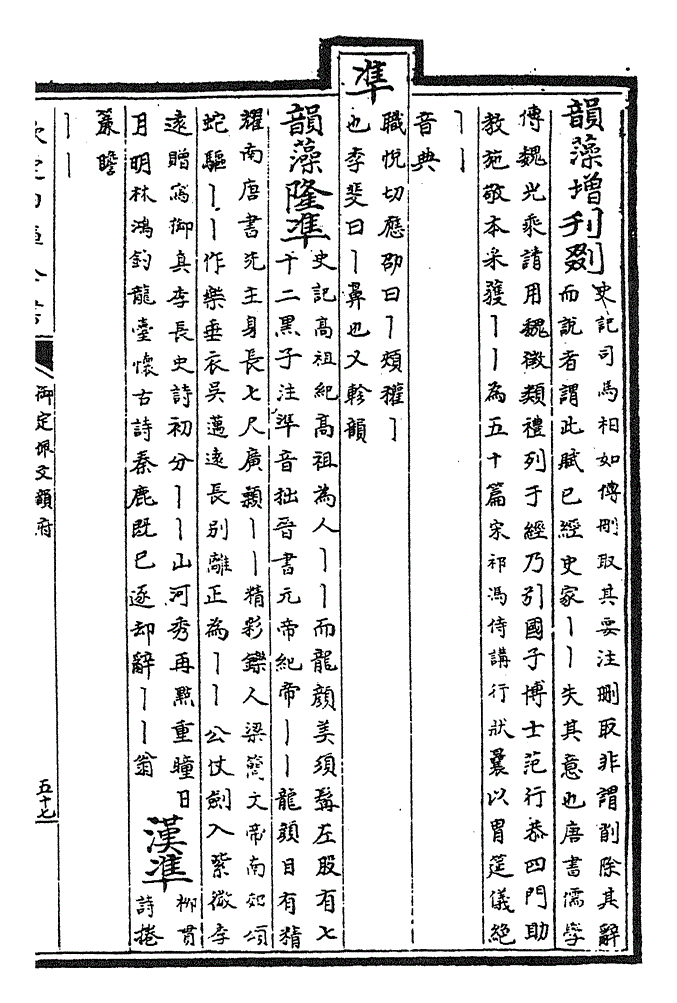 韻藻增刊剟
史記司馬相如傳刪取其要注刪取非謂削除其辭
而說者謂此賦已經史家丨丨失其意也唐書儒學
傳魏光乘請用魏徵類禮列于經乃引國子博士范行恭四門助
教施敬本采獲丨丨為五十篇宋祁馮侍講行狀曩以胄筵儀絕
丨丨
音典
凖
職悅切應邵曰丨頰權丨
也李斐曰丨鼻也又軫韻
韻藻隆凖
史記高祖紀高祖為人丨丨而龍顏美須髯左股有七
十二黑子注準音拙晉書元帝紀帝丨丨龍顏目有精
耀南唐書先主身長七尺廣顙丨丨精彩鑠人梁簡文帝南郊頌
蛇驅丨丨作樂垂衣吳邁遠長別離正為丨丨公仗劍入紫微李
遠贈寫御真李長史詩初分丨丨山河秀再點重瞳日
月明林鴻釣龍臺懷古詩秦鹿既已逐却辭丨丨翁
漢凖
柳貫
詩捲
簾瞻
丨丨
欽定四庫全書
御定佩文韻府
五十七